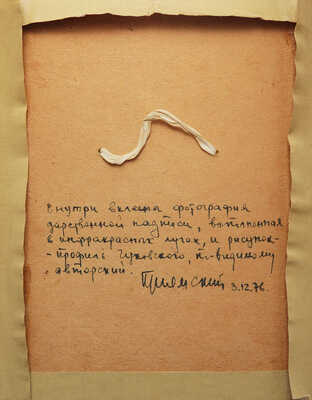 Внутри вклеена фотография
дарственной надписи, выполненная
в инфракрасных лучах, и рисунок-
-профиль Чуковского, по-видимому
авторский.
3.12.76.